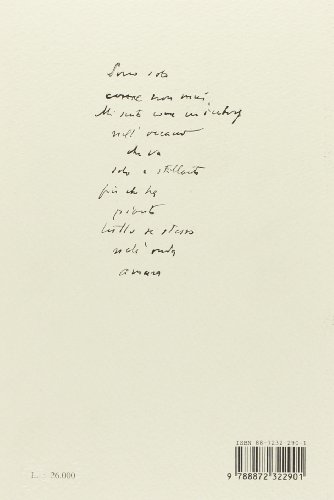 Sono solo
come non mai,
Mi sento come un iceberg
nell'oceano
che va
solo e stillante
pianto
tutto se stesso
nell'onda
amara
ISBN 88-7232-290-1
9 788872 322901
L. : 26.000